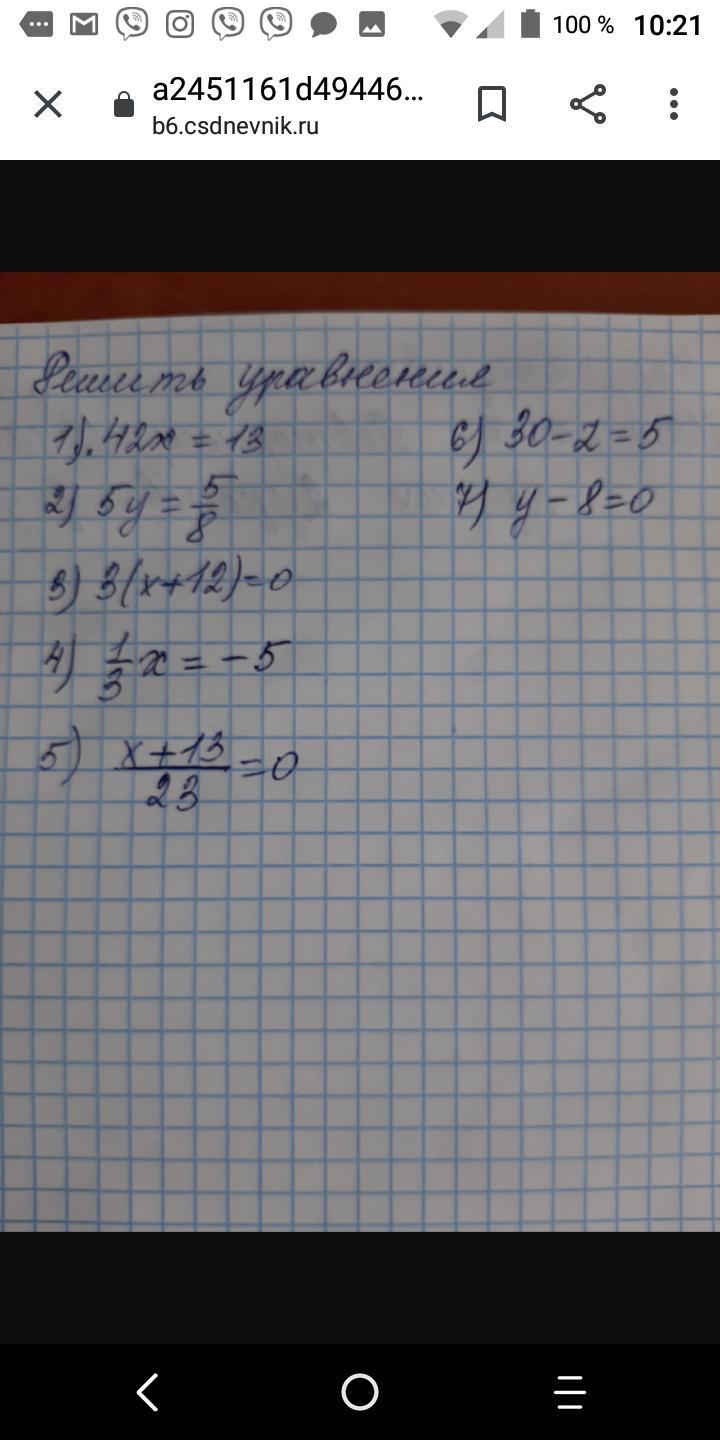 100 % 10:21
a2451161d49446...
b6.csdnevnik.ru
Решить уравнения
1). 42x = 13
2) 5y = 5/8
3) 3(x+12)=0
4) 1/3 x = -5
5) x+13/23 = 0
6) 30-2=5
7) y-8=0